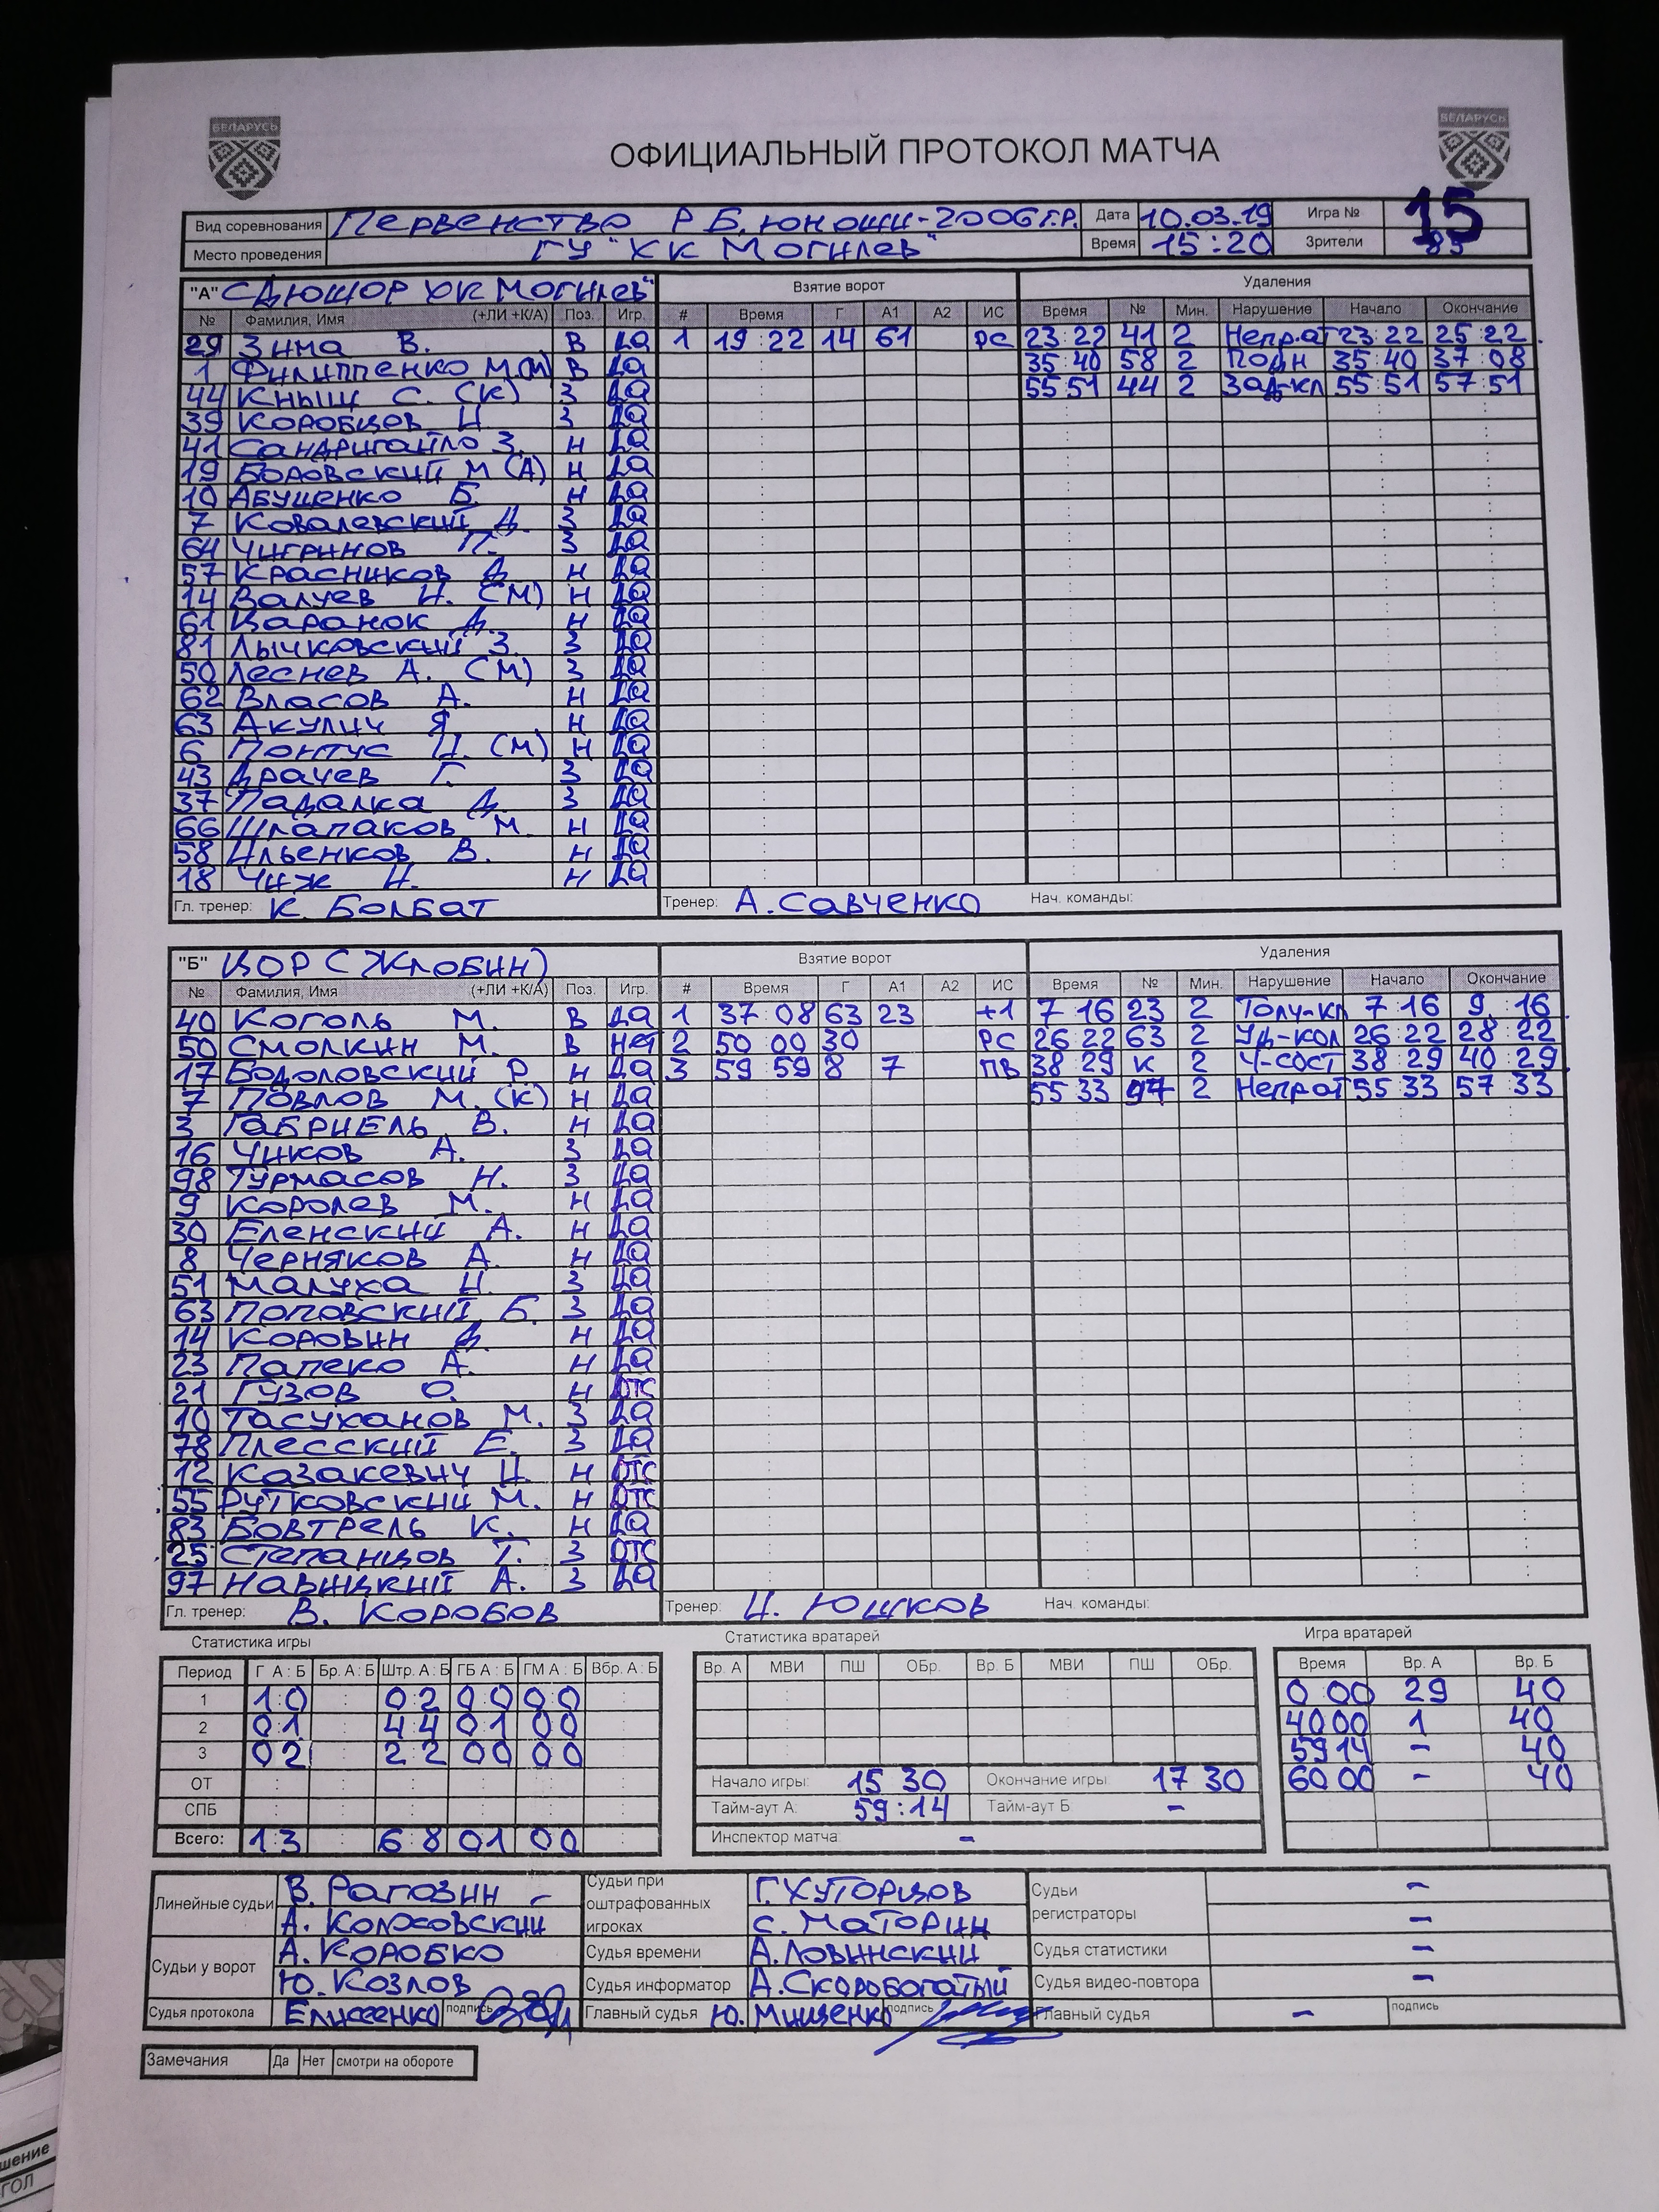 БЕЛАРУСЬ БЕЛАРУСЬ
ОФИЦИАЛЬНЫЙ ПРОТОКОЛ МАТЧА
Вид соревнования Первенство РБ, юноши-2006г.р. Дата 10.03.19 Игра № 15
Место проведения ГУ "ХК Могилев" Время 15:20 Зрители 85
"А" СДЮШОР ХК Могилев" Взятие ворот Удаления
№ Фамилия, Имя (+ЛИ +К/А) Поз. Игр. # Время Г А1 А2 ИС Время № Мин. Нарушение Начало Окончание
29 Зима В. В Да 1 19:22 14 61 РС 23:22 41 2 Непр.ат 23:22 25:22
1 Филиппенко М.(М) В Да 35:40 58 2 Подн 35:40 37:08
44 Кныш С. (К) З Да 55:51 44 2 Зад-кл 55:51 57:51
39 Коробцов И З Да
41 Сандригайло З. Н Да
19 Боровский М (А) Н Да
10 Абушенко Б. Н Да
7 Ковалевский Д. З Да
64 Чигринов П. З Да
57 Красников Д. Н Да
14 Валуев И. (М) Н Да
61 Царанок Д. Н Да
81 Лычковский З. З Да
50 Леснев А. (М) З Да
62 Власов А. Н Да
63 Акулич Я Н Да
6 Понтус И. (М) Н Да
43 Драчев Г. З Да
37 Падалка Д. З Да
66 Шлапаков М. Н Да
58 Ильенков В. Н Да
18 Чиж И. Н Да
Гл. тренер: К. Болбат Тренер: А.Савченко Нач. команды:
"Б" ЦОР (Жлобин) Взятие ворот Удаления
№ Фамилия, Имя (+ЛИ +К/А) Поз. Игр. # Время Г А1 А2 ИС Время № Мин. Нарушение Начало Окончание
40 Коголь М. В Да 1 37:08 63 23 +1 7:16 23 2 Толч-кл 7:16 9:16
50 Смолкин М. В Нет 2 50:00 30 РС 26:22 63 2 Уд-кол 26:22 28:22
17 Водоловский Р Н Да 3 59:59 8 7 ПВ 38:29 К 2 Ч-сост 38:29 40:29
7 Павлов М. (К) Н Да 55:33 97 2 Непрат 55:33 57:33
3 Габриель В. Н Да
16 Чиков А. З Да
98 Турмасов Н. З Да
9 Королев М. Н Да
30 Еленский А. Н Да
8 Черняков А. Н Да
51 Малуха И. З Да
63 Поповский Б. З Да
14 Коровин Д. Н Да
23 Папеко А. Н Да
21 Гузов О. Н отс
10 Тасуханов М. З Да
78 Плесский Е. З Да
12 Казакевич И. Н отс
55 Рутковский М. Н отс
83 Бовтрель К. Н Да
25 Степанцов Т. З отс
97 Навицкий А. З Да
Гл. тренер: В. Коробов Тренер: И. Юшков Нач. команды:
Статистика игры Статистика вратарей Игра вратарей
Период Г А : Б Бр. А : Б Штр. А : Б ГБ А : Б ГМ А : Б Вбр. А : Б Вр. А МВИ ПШ ОБр. Вр. Б МВИ ПШ ОБр. Время Вр. А Вр. Б
1 1:0 : 0:2 0:0 0:0 : 0 00 29 40
2 0:1 : 4:4 0:1 0:0 : 40 00 1 40
3 0:2 : 2:2 0:0 0:0 : 59 14 - 40
ОТ Начало игры: 15 30 Окончание игры: 17 30 60 00 - 40
СПБ Тайм-аут А: 59:14 Тайм-аут Б -
Всего: 1:3 : 6:8 0:1 0:0 : Инспектор матча: -
Линейные судьи В. Рагозин Судьи при оштрафованных игроках Г.Хуторцов Судьи регистраторы -
А. Колховский С. Маторин -
Судьи у ворот А. Коробко Судья времени А.Ловинский Судья статистики -
Ю. Козлов Судья информатор А.Скоробогатый Судья видео-повтора -
Судья протокола Елисеенко подпись Главный судья Ю. Мищенко подпись Главный судья - подпись
Замечания Да Нет смотри на обороте
шение
ГОЛ